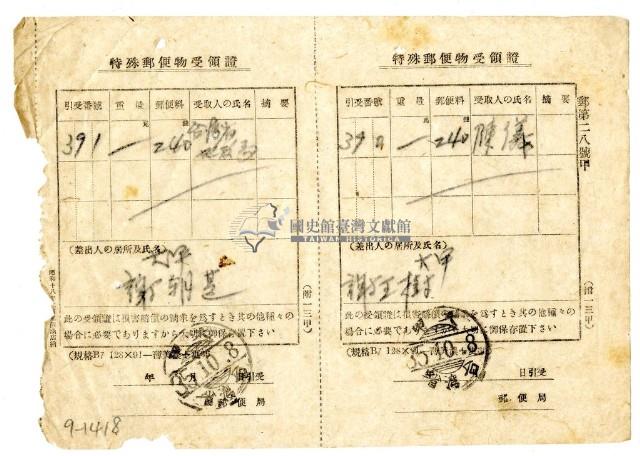 特殊郵便物受領證
引受番號 重量 郵便料 受取人の氏名 摘要
391 一 240
(差出人の居所及氏名)
大甲
此の受領證は損害賠償の請求を爲すとき其の他種々の
場合に必要でありますから大切に御保存置下さい
(規格B7 128×91
年 月 日引受
郵便局
(附一三甲)
9-1418
特殊郵便物受領證
引受番號 重量 郵便料 受取人の氏名 摘要
390 一 240 陳儀
(差出人の居所及氏名)
大甲
此の受領證は損害賠償の請求を爲すとき其の他種々の
場合に必要でありますから大切に御保存置下さい
(規格B7 128×91
日引受
郵便局
郵第二八號甲
(附一三甲)
國史館臺灣文獻館
TAIWAN HISTORICA